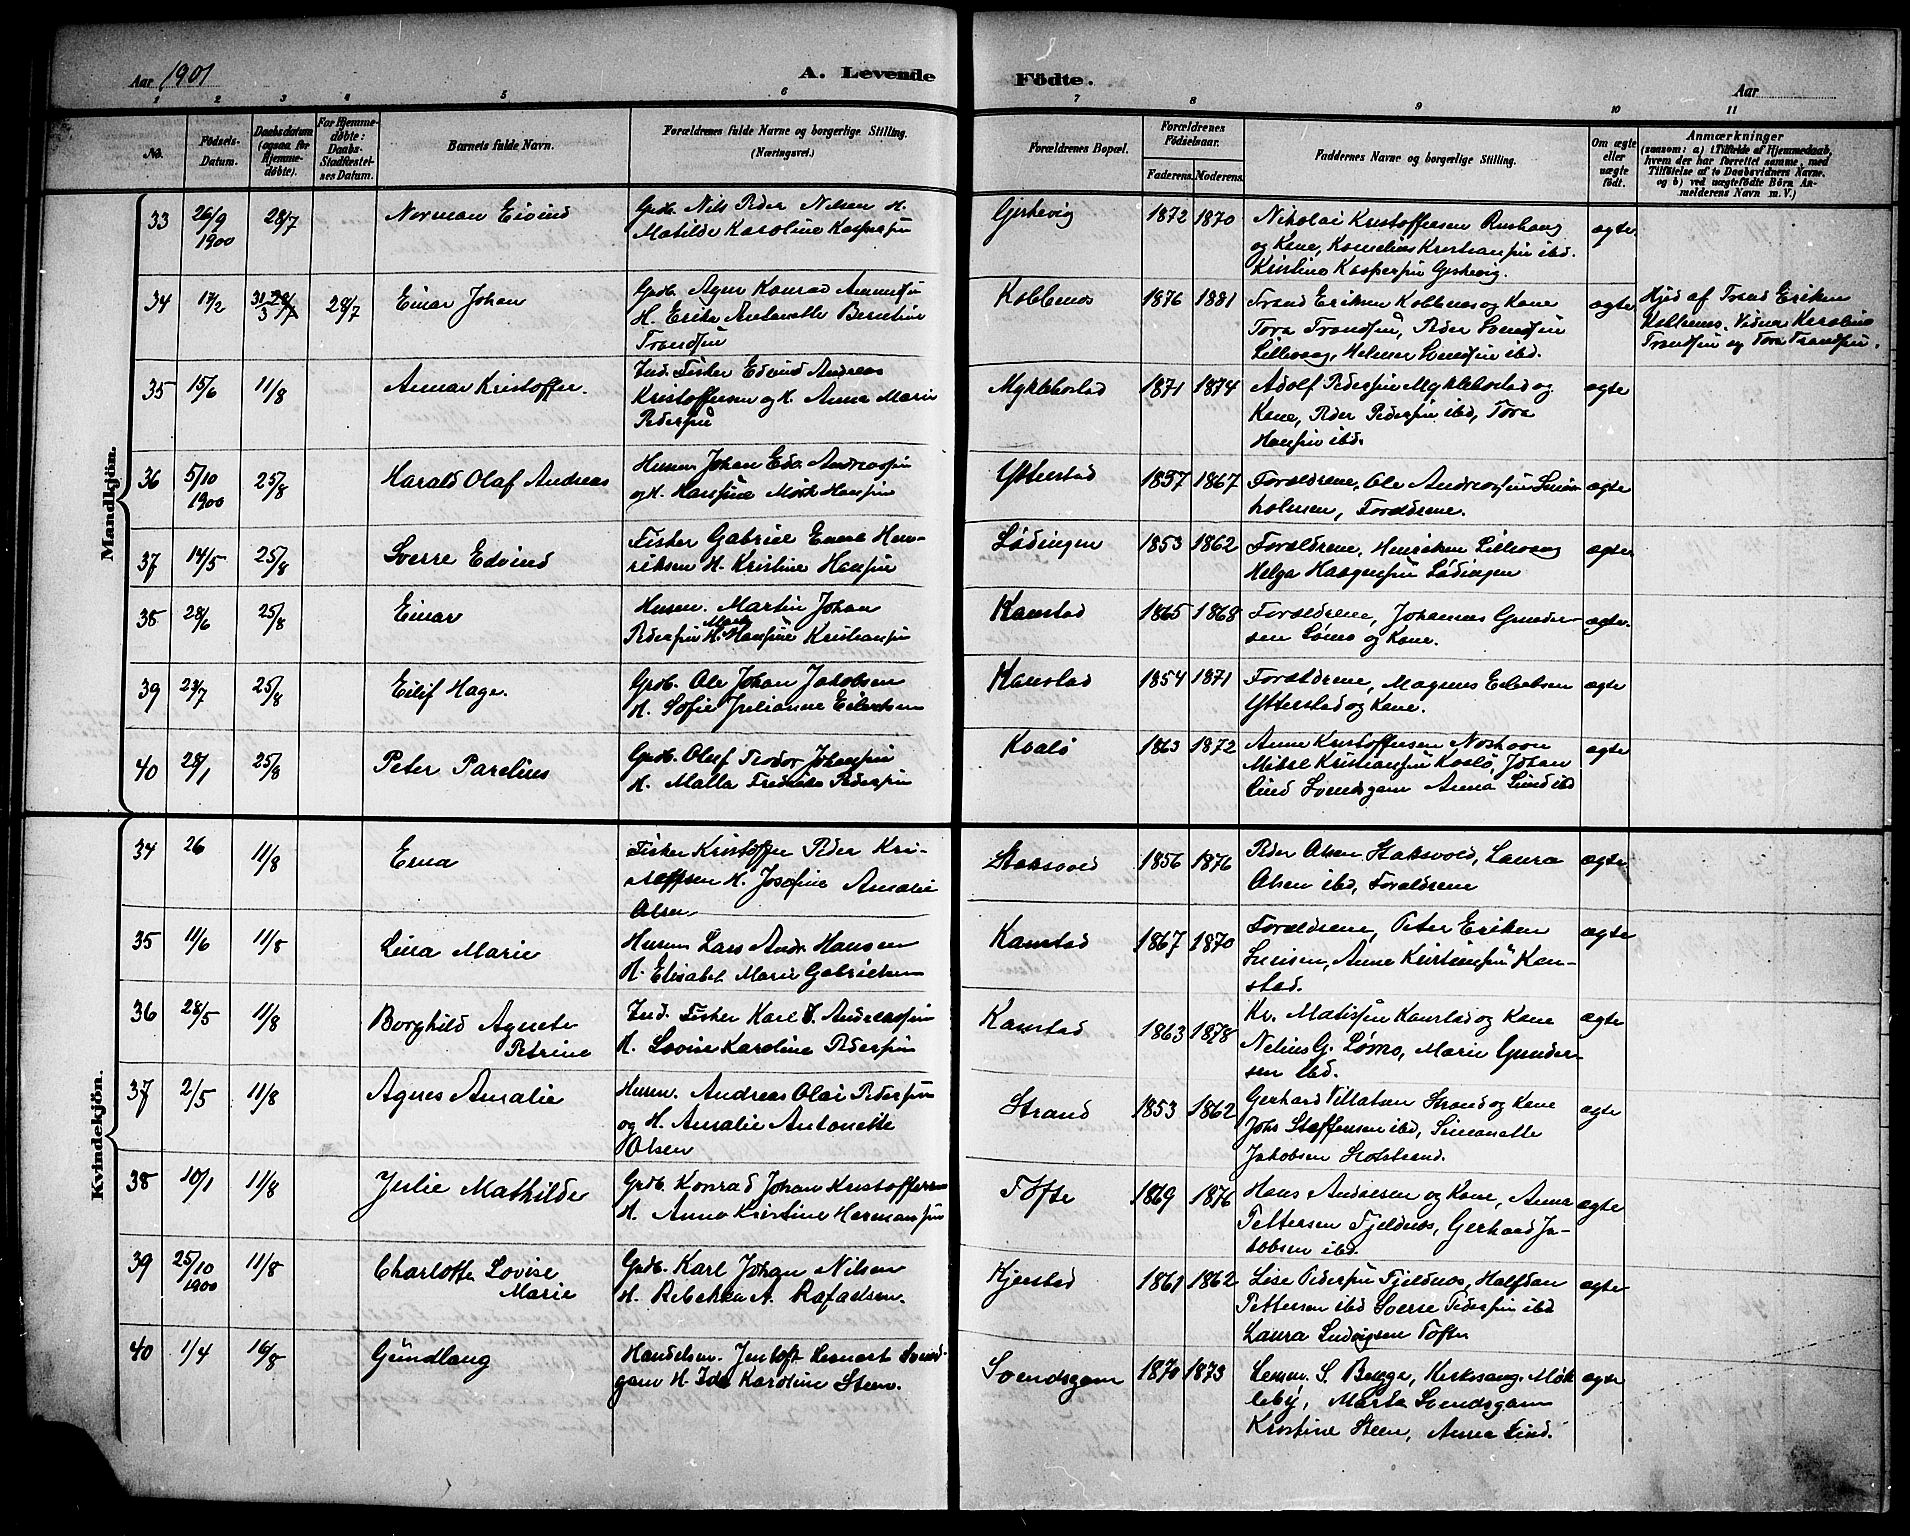 Aar 1901
A. Levende
Födte.
Aar
1 2 3 4 5 6 7 8 9 10 11
No.
Födsels-
Datum.
Daabsdatum
(ogsaa for
Hjemme-
døbte).
For Hjemme-
døbte:
Daabs-
Stadfæstel-
ses Datum.
Barnets fulde Navn.
Forældrenes fulde Navne og borgerlige Stilling.
(Næringsvei.)
Forældrenes Bopæl.
Forældrenes
Födselsaar.
Faderens. Moderens.
Faddernes Navne og borgerlige Stilling.
Om ægte
eller
uægte
født.
Anmærkninger
(saasom: a) i Tilfælde af Hjemmedaab,
hvem der har forrettet samme, med
Tilføielse af to Daabsvidners Navne.
og b) ved uægtefødte Börn An-
melderens Navn m. V.)
Mandkjön.
33 26/9 1900 28/7 Norman Eivind
Grdb. Nils Peder Nilsen H.
Matilde Karoline Kaspersen
Gjerkevig 1872 1870
Nikolai Kristoffersen
og Kone, Kornelius Kristiansen ibd.
Kristine Kaspersen Gjerkevig.
ægte
34 17/2 31/3 28/7 28/7 Einar Johan
Grdb. Konrad
H. Erika Antonette Berntine
Trondsen
Kobbenes 1876 1881
Trond Eriksen Kobbenes og Kone
Tora Trondsen, Peder Svendsen
Lillevaag, Helmer Svendsen ibd.
ægte
Hjed af Trond Eriksen
Kobbenes. Vidner Karoline
Trondsen og Tora Trondsen.
35 15/6 11/8 Annar Kristoffer.
Ind. Fisker Edvind Andreas
Kristoffersen og H. Anna Marie
Pedersen
Myklebostad 1871 1874
Adolf Pedersen Myklebostad og
Kone, Peder Pedersen ibd, Tora
Hansen ibd.
ægte
36 5/10 1900 25/8 Harald Olaf Andreas
Husm. Johan Edv. Andreassen
og H. Hansine Hansen
Ytterstad 1857 1867
Forældrene, Ole Andreassen
holmen, Forældrene.
ægte
37 14/5 25/8 Sverre Edvind
Fisker Gabriel Hen-
riksen H. Kristine Hansen
Lødingen 1853 1862
Forældrene, Henriksen Lillevaag
Helga Haagensen Lødingen
ægte
38 28/6 25/8 Einar
Husm. Martin Johan
Pedersen H. Hansine Kristiansen
Kanstad 1865 1868
Forældrene, Johannes Gunder-
sen Lømo og Kone.
ægte.
39 23/7 25/8 Eilif Hage.
Grdb. Ole Johan Jakobsen
H. Sofie Julianne Eilertsen
Kanstad 1854 1871
Forældrene, Magnus Eilertsen
Ytterstad og Kone.
ægte
40 28/1 25/8 Peter Parelius
Grdb. Oluf Teodor Johansen
H. Malla Fredrikke Pedersen
Kvalø 1863 1872
Anne Kristoffersen
Mikal Kristiansen Kvalø, Johan
Lind Svendsgam Anna Lind ibd
ægte
Kvindekjön.
34 26 11/8 Erna
Fisker Kristoffer Peder Kri-
stoffsen H. Josefine Amalie
Olsen
Staksvold 1856 1876
Peder Olsen Staksvold, Laura
Olsen ibd, Forældrene
ægte
35 11/6 11/8 Lina Marie
Husm Lars Andr. Hansen
H. Elisabet Marie Gabrielsen
Kanstad 1867 1870
Forældrene, Peter Eriksen
Anne Kristiansen Kan-
stad.
ægte
36 28/5 11/8 Borghild Agnete
Petrine
Ind. Fisker Karl J. Andreassen
H. Lovise Karoline Pedersen
Kanstad 1863 1878
Kr. Matissen Kanstad og Kone
Nelius G. Lømo, Marie Gunder-
sen ibd.
ægte
37 2/5 11/8 Agnes Amalie
Husm. Andreas Olai Pedersen
og H. Amalie Antonette
Olsen
Strand 1853 1862
Gerhard Villatsen Strand og Kone
Johs Staffensen ibd, Simonette
Jakobsen
ægte
38 10/1 11/8 Julie Mathilde
Grdb. Konrad Johan Kristoffersen
H. Anna Kristine Hermansen
Tofte 1869 1876
Hans Andresen og Kone, Anna
Pettersen Fjeldnes, Gerhard Ja-
kobsen ibd.
ægte
39 25/10 1900 11/8 Charlotte Lovise
Marie
Grdb. Karl Johan Nilsen
H. Rebekka A. Rafaelsen.
Kjerstad 1861 1862
Lise Pedersen Fjeldnes, Halfdan
Pettersen ibd Sverre Pedersen ibd
Laura Ludvigsen Tofte
ægte
40 1/4 16/8 Gundlaug
Handelsm. Jentoft Svend-
gam H. Ida Karoline Steen.
Svendsgam 1870 1873
Lensm. S. Bugge, Kirkesang. Møk-
leby, Marta Svendsgam
Kristine Steen, Anna Lind.
ægte